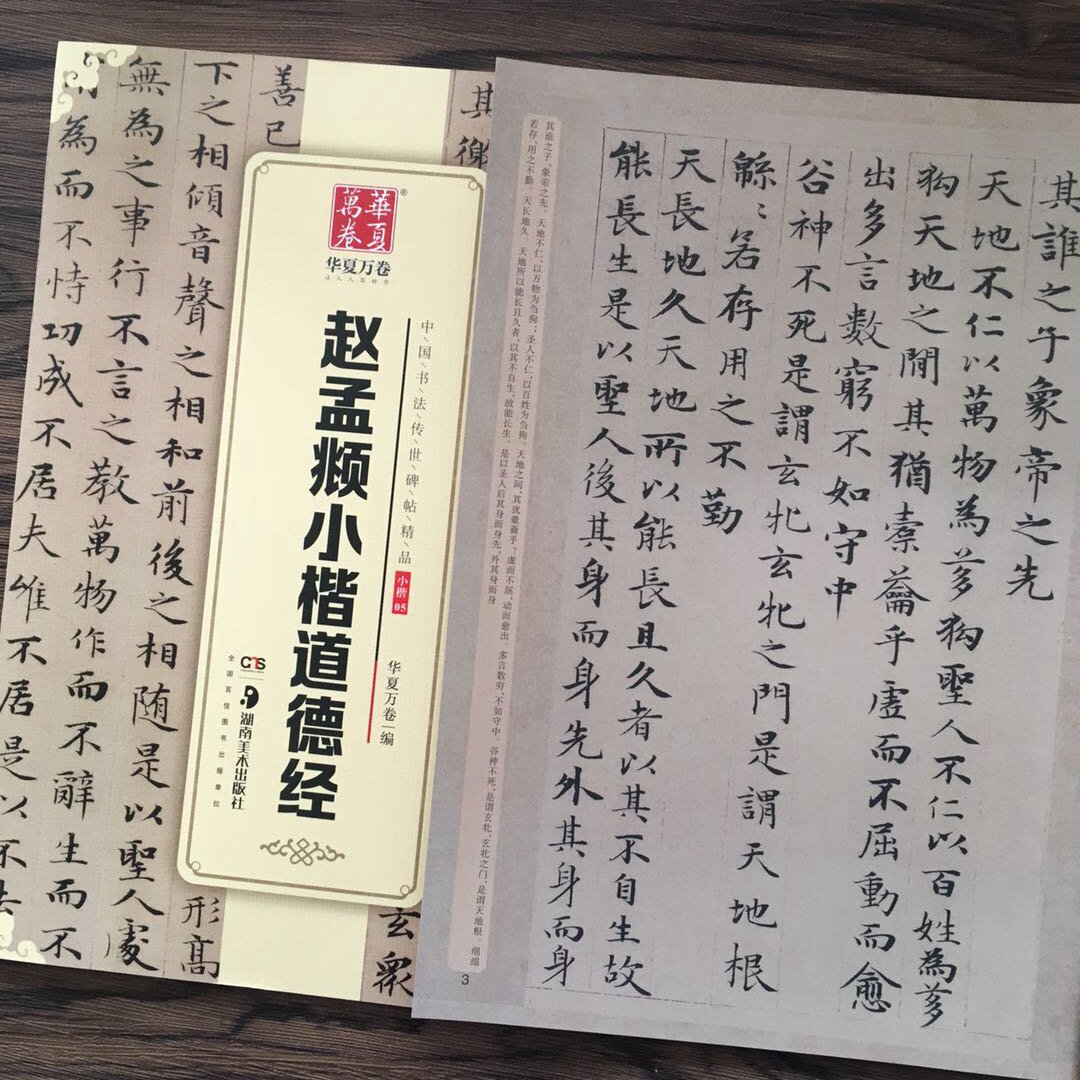 其徼
玄衆
善已
形高
下之相傾音聲之相和前後之相随是以聖人處
無為之事行不言之教萬物作而不辭生而不
為而不恃功成不居夫唯不居是以不去
華夏萬卷
®
华夏万卷
让人人写好字
中国书法传世碑帖精品
小楷05
华夏万卷 编
赵孟頫小楷道德经
湖南美术出版社
全国百佳图书出版单位
其誰之子象帝之先
天地不仁以萬物為芻狗聖人不仁以百姓為芻
狗天地之間其猶橐籥乎虛而不屈動而愈
出多言數窮不如守中
谷神不死是謂玄牝玄牝之門是謂天地根
緜〻若存用之不勤
天長地久天地所以能長且久者以其不自生故
能長生是以聖人後其身而身先外其身而身
其谁之子,象帝之先。天地不仁,以万物为刍狗;圣人不仁,以百姓为刍狗。天地之间,其犹橐籥乎?虚而不屈,动而愈出。多言数穷,不如守中。谷神不死,是谓玄牝,玄牝之门,是谓天地根。绵绵
若存,用之不勤。天长地久,天地所以能长且久者,以其不自生,故能长生。是以圣人后其身而身先,外其身而身
3